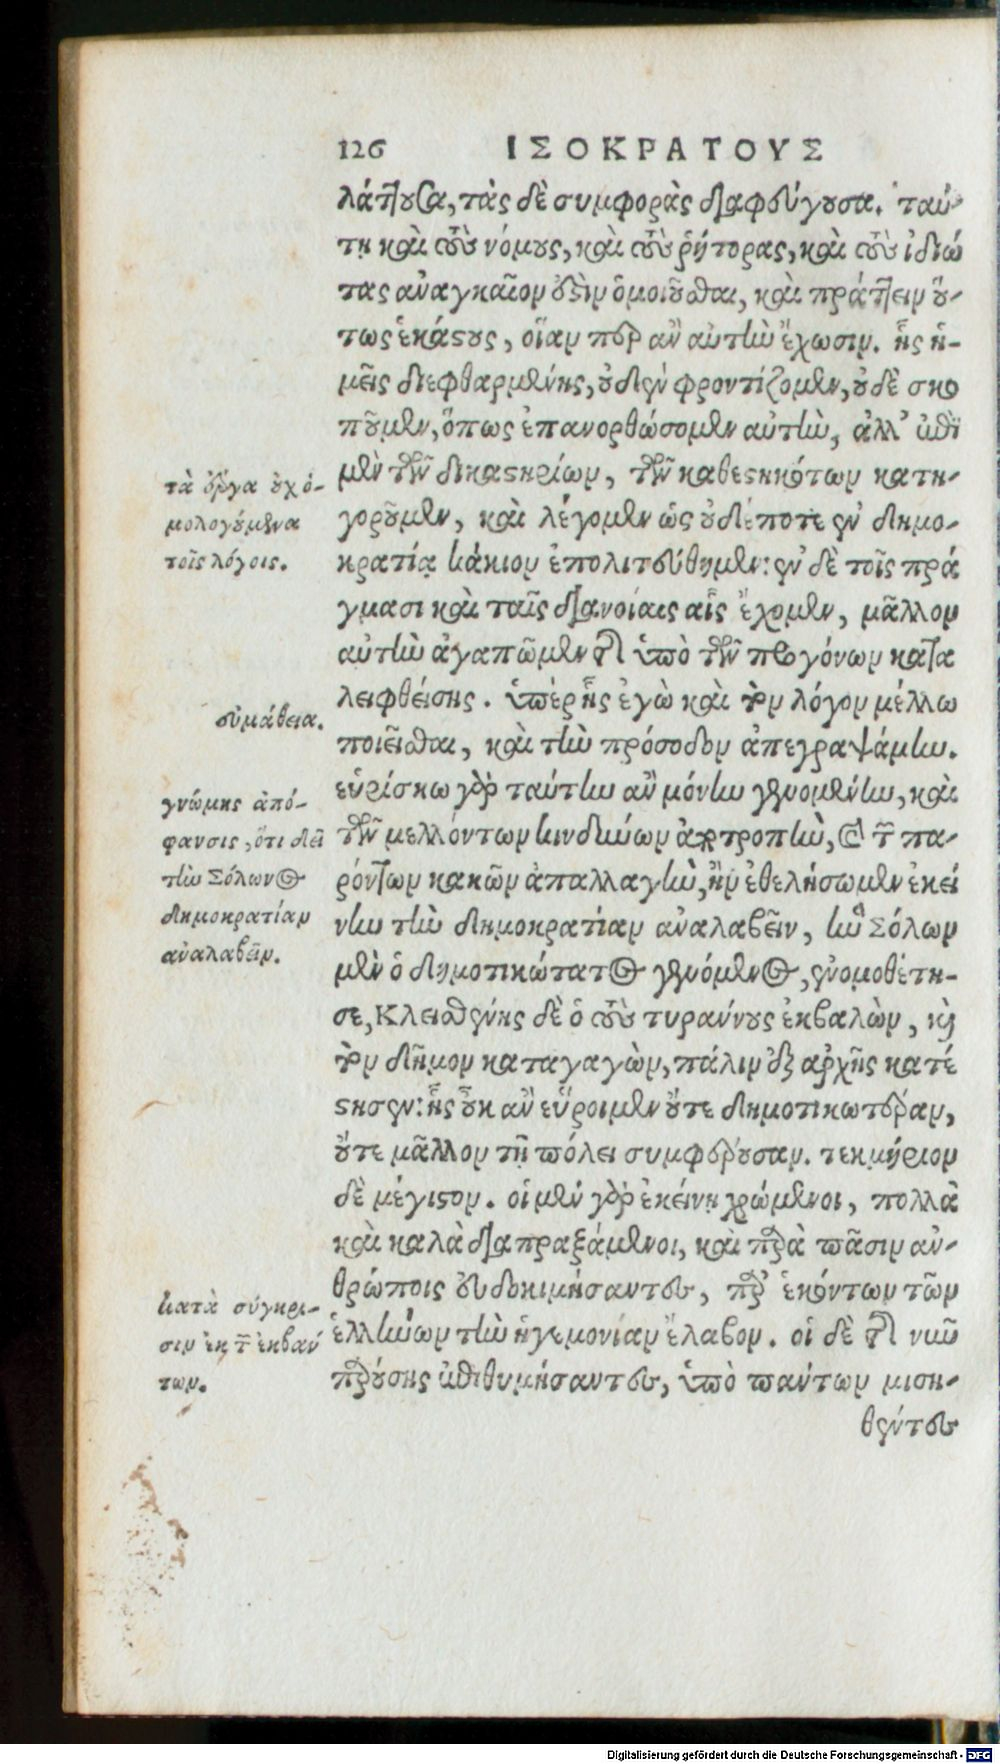 126 ΙΣΟΚΡΑΤΟΥΣ
λάττουσα, τὰς δὲ συμφορὰς διαφεύγουσα. ταύ-
τῃ καὶ τοὺς νόμους, καὶ τοὺς ῥήτορας, καὶ τοὺς ἰδιώ
τας ἀναγκαῖον ἐστὶν ὁμοιοῦσθαι, καὶ πράττειν οὕ-
τως ἑκάστους, οἵαν περ ἂν αὐτὴν ἔχωσιν. ἧς ἡ-
μεῖς διεφθαρμένης, οὐδὲν φροντίζομεν, οὐδὲ σκο
ποῦμεν, ὅπως ἐπανορθώσομεν αὐτὴν, ἀλλ' ἐπὶ
μὲν τῶν δικαστηρίων, τῶν καθεστηκότων κατη-
γοροῦμεν, καὶ λέγομεν ὡς οὐδέποτε ἐν δημο-
κρατίᾳ κάκιον ἐπολιτεύθημεν: ἐν δὲ τοῖς πρά
γμασι καὶ ταῖς διανοίαις αἷς ἔχομεν, μᾶλλον
αὐτὴν ἀγαπῶμεν τῆς ὑπὸ τῶν προγόνων κατα
λειφθείσης. ὑπὲρ ἧς ἐγὼ καὶ τὸν λόγον μέλλω
ποιεῖσθαι, καὶ τὴν πρόσοδον ἀπεγραψάμην.
εὑρίσκω γὰρ ταύτην ἂν μόνην γενομένην, καὶ
τῶν μελλόντων κινδύνων ἀποτροπὴν, καὶ τῶν πα-
ρόντων κακῶν ἀπαλλαγὴν, ἢν ἐθελήσωμεν ἐκεί
νην τὴν δημοκρατίαν ἀναλαβεῖν, ἣν Σόλων
μὲν ὁ δημοτικώτατος γενόμενος, ἐνομοθέτη-
σε, Κλεισθένης δὲ ὁ τοὺς τυράννους ἐκβαλὼν, καὶ
τὸν δῆμον καταγαγὼν, πάλιν ἐξ ἀρχῆς κατέ
στησεν: ἧς οὐκ ἂν εὕροιμεν οὔτε δημοτικωτέραν,
οὔτε μᾶλλον τῇ πόλει συμφέρουσαν. τεκμήριον
δὲ μέγιστον. οἱ μὲν γὰρ ἐκείνῃ χρώμενοι, πολλὰ
καὶ καλὰ διαπραξάμενοι, καὶ παρὰ πᾶσιν ἀν-
θρώποις εὐδοκιμήσαντες, παρ' ἑκόντων τῶν
ἑλλήνων τὴν ἡγεμονίαν ἔλαβον. οἱ δὲ τῆς νῦν
παρούσης ἐπιθυμήσαντες, ὑπὸ πάντων μιση-
θέντες
τὰ ἔργα οὐχ ὁ-
μολογούμενα
τοῖς λόγοις.
εὐμάθεια.
γνώμης ἀπό-
φανσις, ὅτι δεῖ
τὴν Σόλωνος
δημοκρατίαν
ἀναλαβεῖν.
κατὰ σύγκρι-
σιν ἐκ τῶν ἐκβάν
των.
Digitalisierung gefördert durch die Deutsche Forschungsgemeinschaft - DFG